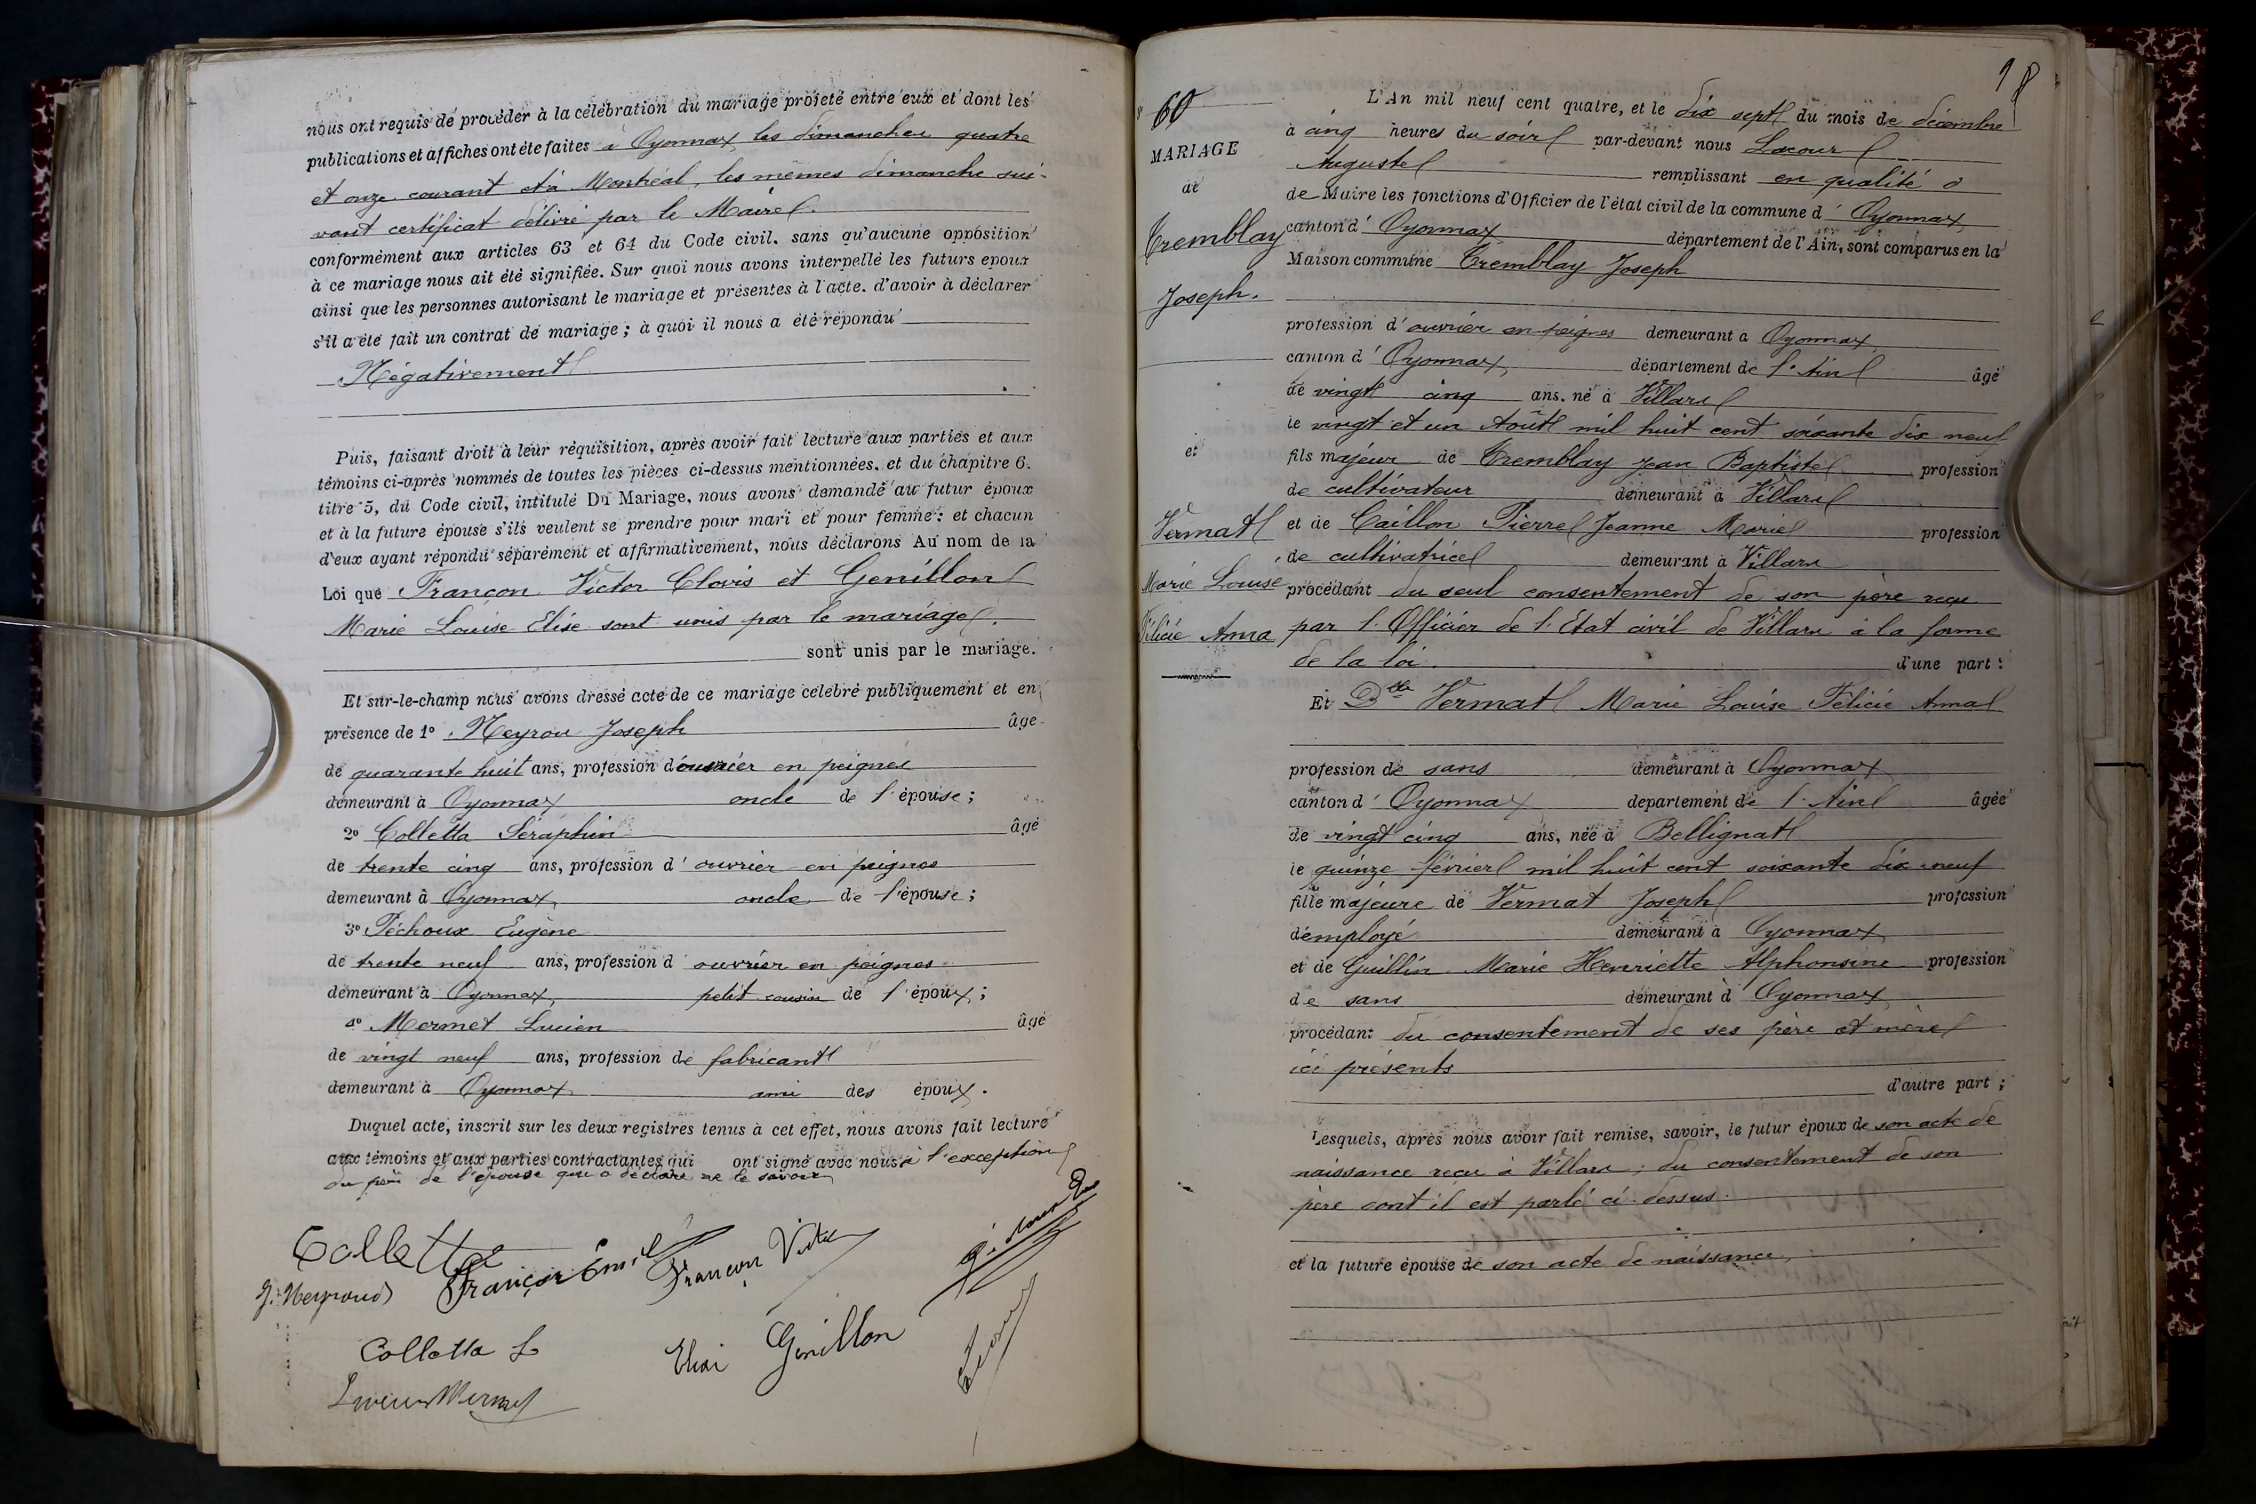 nous ont requis de procéder à la célébration du mariage projeté entre eux et dont les
publications et affiches ont été faites à Oyonnax les dimanches quatre
et onze courant et à Montréal, les mêmes dimanche sui-
vant certificat délivré par le Maire.
conformément aux articles 63 et 64 du Code civil, sans qu'aucune opposition
à ce mariage nous ait été signifiée. Sur quoi nous avons interpellé les futurs époux
ainsi que les personnes autorisant le mariage et présentes à l'acte, d'avoir à déclarer
s'il a été fait un contrat de mariage ; à quoi il nous a été répondu
Négativement
Puis, faisant droit à leur réquisition, après avoir fait lecture aux parties et aux
témoins ci-après nommés de toutes les pièces ci-dessus mentionnées, et du chapitre 6.
titre 5, du Code civil, intitulé Du Mariage, nous avons demandé au futur époux
et à la future épouse s'ils veulent se prendre pour mari et pour femme : et chacun
d'eux ayant répondu séparément et affirmativement, nous déclarons Au nom de la
Loi que Françon Victor Clovis et Genillon
Marie Louise Elise sont unis par le mariage.
sont unis par le mariage.
Et sur-le-champ nous avons dressé acte de ce mariage célébré publiquement et en
présence de 1º Neyrou Joseph âgé
de quarante huit ans, profession d'ouvrier en peignes
demeurant à Oyonnax oncle de l'épouse ;
2º Colletta Séraphin âgé
de trente cinq ans, profession d' ouvrier en peignes
demeurant à Oyonnax oncle de l'épouse ;
3º Péchoux Eugène
de trente neuf ans, profession d ouvrier en peignes
demeurant à Oyonnax, petit cousin de l'époux ;
4º Mermet Lucien âgé
de vingt neuf ans, profession de fabricant
demeurant à Oyonnax ami des époux.
Duquel acte, inscrit sur les deux registres tenus à cet effet, nous avons fait lecture
aux témoins et aux parties contractantes qui ont signé avec nous à l'exception
du père de l'épouse qui a déclaré ne le savoir
Colletta
J. Neyroud Françon Emil Françon Victor
Colletta L Elise Genillon
Lucien Mermet
18
60
MARIAGE
de
Tremblay
Joseph.
et
Vermat
Marie Louise
Félicie Anna
L'An mil neuf cent quatre, et le dix sept du mois de décembre
à cinq heures du soir par-devant nous Lacour
Auguste remplissant en qualité d
de Maire les fonctions d'Officier de l'état civil de la commune d' Oyonnax,
canton d' Oyonnax département de l'Ain, sont comparus en la
Maison commune Tremblay Joseph
profession d' ouvrier en peignes demeurant à Oyonnax,
canton d' Oyonnax, département de l'Ain âgé
de vingt cinq ans, né à Villars
le vingt et un Août mil huit cent soixante dix neuf
fils majeur de Tremblay Jean Baptiste profession
de cultivateur demeurant à Villars
et de Caillon Pierre Jeanne Marie profession
de cultivatrice demeurant à Villars
procédant du seul consentement de son père reçu
par l'Officier de l'Etat civil de Villars à la forme
de la loi. d'une part :
Et Dlle Vermat Marie Louise Félicie Anna
profession de sans demeurant à Oyonnax
canton d' Oyonnax département de l'Ain âgée
de vingt cinq ans, née à Bellignat
le quinze février mil huit cent soixante dix neuf
fille majeure de Vermat Joseph profession
d'employé demeurant à Oyonnax
et de Guillin Marie Henriette Alphonsine profession
de sans demeurant à Oyonnax
procédant du consentement de ses père et mère
ici présents
d'autre part ;
Lesquels, après nous avoir fait remise, savoir, le futur époux de son acte de
naissance reçu à Villars ; du consentement de son
père dont il est parlé ci-dessus.
et la future épouse de son acte de naissance,